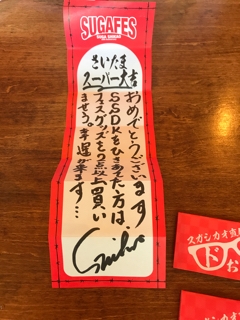 SUGAFES
さいたま
スーパー大吉
おめでとうございます
SSDKをひきあてた方は、
フェスグッズを2点以上買い
ませう。幸運が来ます…
スガシカオ
ド
お